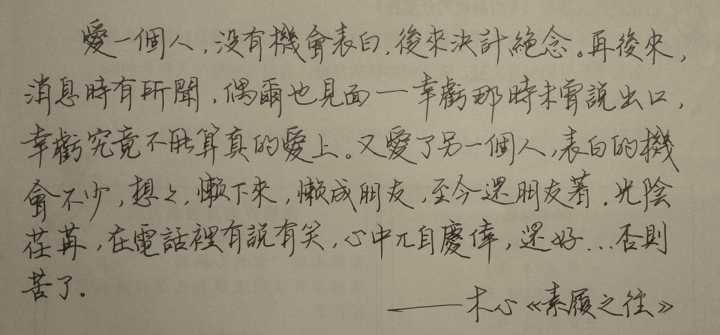 愛一個人，沒有機會表白，後來決計絕念。再後來，
消息時有所聞，偶爾也見面——幸虧那時未曾說出口，
幸虧究竟不能算真的愛上。又愛了另一個人，表白的機
會不少，想之，懶下來，懶成朋友，至今還朋友著。光陰
荏苒，在電話裡有說有笑，心中兀自慶倖，還好…否則
苦了。
——木心《素履之往》